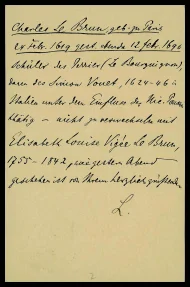 Charles Le Brun, geb. zu Paris
24 Febr. 1619 gest. ebenda 12 Feb. 1690
Schüler des Perrier (Le Bourguignon)
dann des Simon Vouet, 1624-46 in
Italien unter dem Einfluss des Nic. Poussin
thätig – nicht zu verwechseln mit
Elisabeth Louise Vigée Le Brun,
1755-1842 Abend
geschehen ist von Ihrem herzlich grüssenden
L.